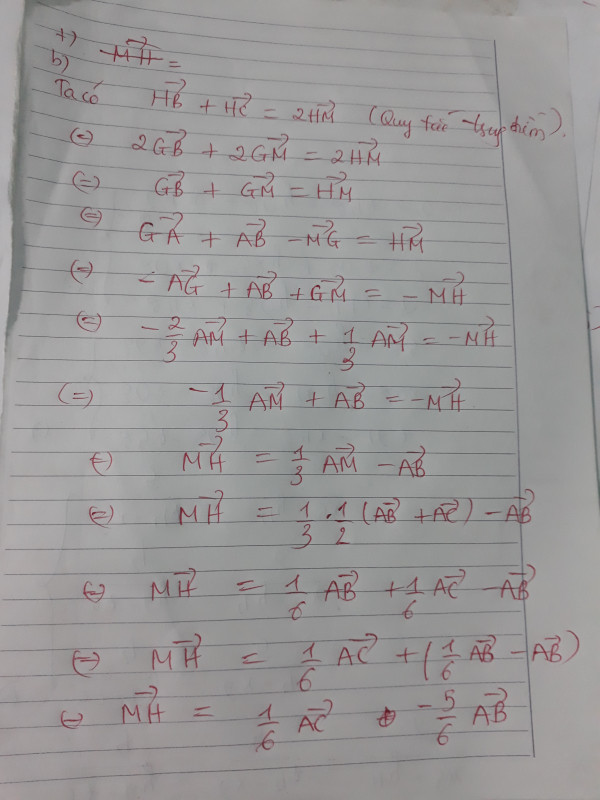 +) MH⃗ =
b)
Ta có HB⃗ + HC⃗ = 2HM⃗ (Quy tắc trung điểm).
(=) 2GB⃗ + 2GM⃗ = 2HM⃗
(=) GB⃗ + GM⃗ = HM⃗
(=) GA⃗ + AB⃗ - MG⃗ = HM⃗
(=) - AG⃗ + AB⃗ + GM⃗ = - MH⃗
(=) - 2/3 AM⃗ + AB⃗ + 1/3 AM⃗ = - MH⃗
(=) - 1/3 AM⃗ + AB⃗ = - MH⃗
(=) MH⃗ = 1/3 AM⃗ - AB⃗
(=) MH⃗ = 1/3 . 1/2 (AB⃗ + AC⃗) - AB⃗
(=) MH⃗ = 1/6 AB⃗ + 1/6 AC⃗ - AB⃗
(=) MH⃗ = 1/6 AC⃗ + (1/6 AB⃗ - AB⃗)
(=) MH⃗ = 1/6 AC⃗ - 5/6 AB⃗